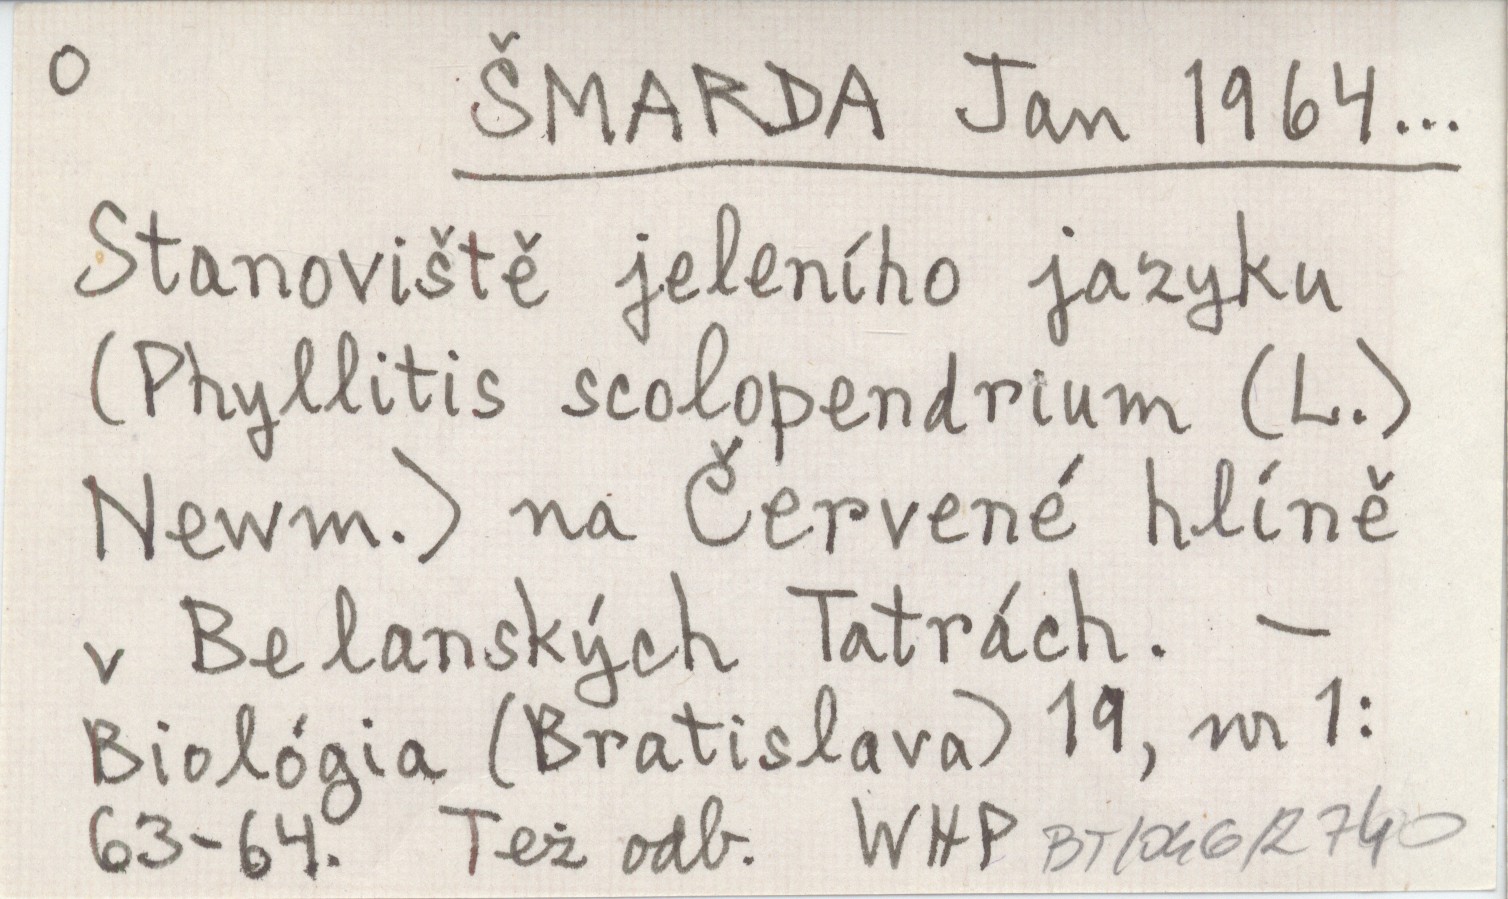 O ŠMARDA Jan 1964...
Stanoviště jeleního jazyku
(Phyllitis scolopendrium (L.)
Newm.) na Červené hlíně
v Belanských Tatrách. –
Biológia (Bratislava) 19, nr 1:
63-64. Też odb. WHP